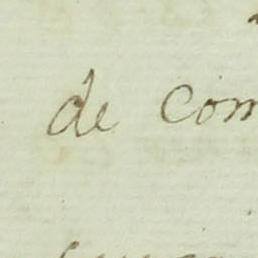 de com